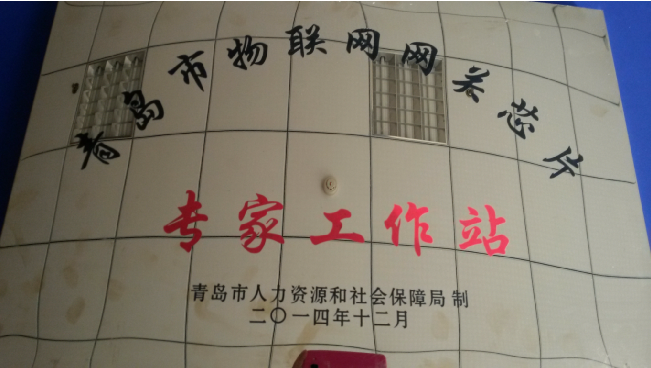 青岛市物联网网关芯片
专家工作站
青岛市人力资源和社会保障局 制
二〇一四年十二月